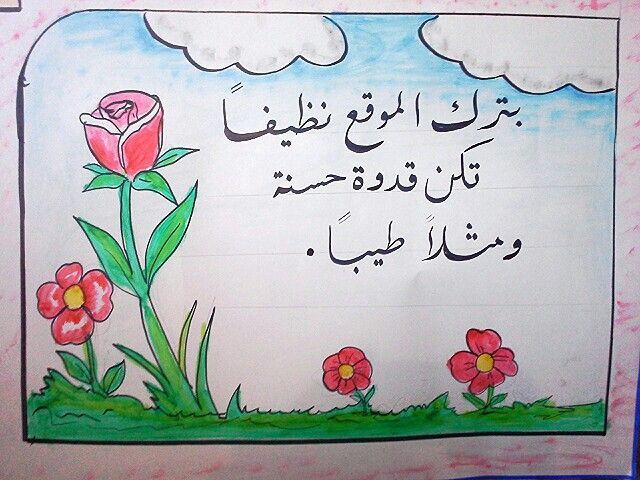 بترك الموقع نظيفاً
تكن قدوة حسنة
ومثلاً طيباً .